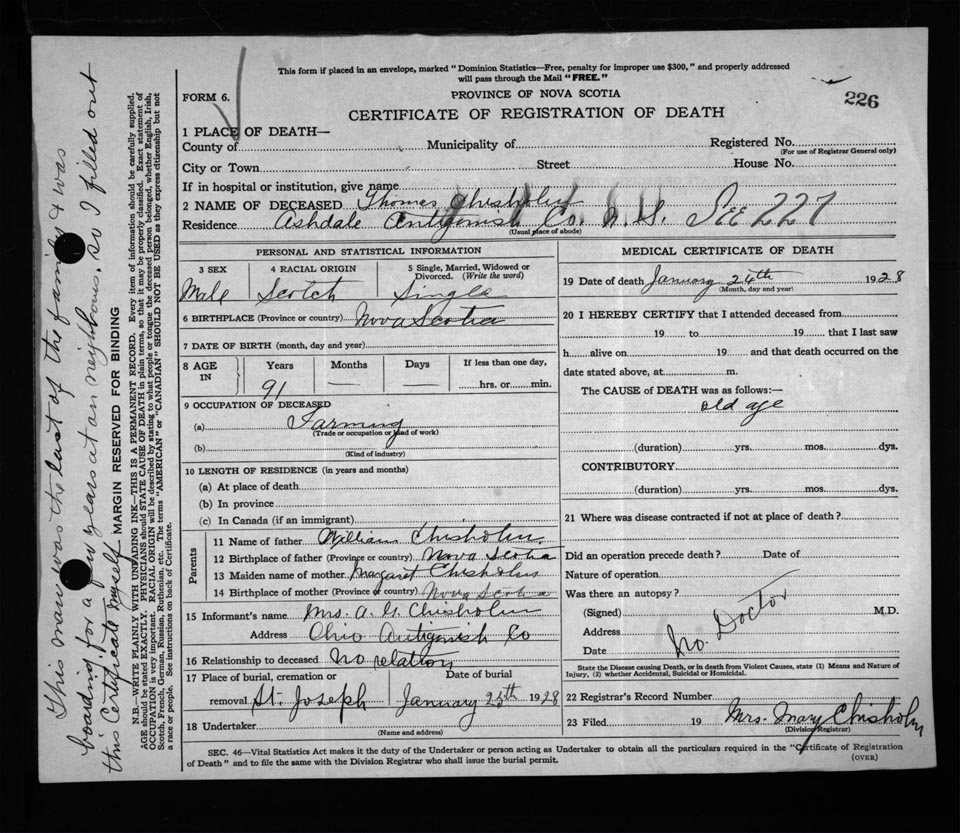 This form if placed in an envelope, marked "Dominion Statistics—Free, penalty for improper use $300," and properly addressed
will pass through the Mail "FREE."
FORM 6.
PROVINCE OF NOVA SCOTIA
226
CERTIFICATE OF REGISTRATION OF DEATH
1 PLACE OF DEATH—
County of Municipality of Registered No.
(For use of Registrar General only)
City or Town Street House No.
If in hospital or institution, give name
2 NAME OF DECEASED Thomas Chisholm
Residence Ashdale Antigonish Co. N. S. See 227
(Usual place of abode)
PERSONAL AND STATISTICAL INFORMATION
3 SEX 4 RACIAL ORIGIN 5 Single, Married, Widowed or
Divorced. (Write the word)
Male Scotch Single
6 BIRTHPLACE (Province or country) Nova Scotia
7 DATE OF BIRTH (month, day and year)
8 AGE IN Years Months Days If less than one day,
91 — — hrs. or min.
9 OCCUPATION OF DECEASED
(a) Farming
(Trade or occupation or kind of work)
(b)
(Kind of industry)
10 LENGTH OF RESIDENCE (in years and months)
(a) At place of death
(b) In province
(c) In Canada (if an immigrant)
Parents
11 Name of father William Chisholm
12 Birthplace of father (Province or country) Nova Scotia
13 Maiden name of mother Margaret Chisholm
14 Birthplace of mother (Province or country) Nova Scotia
15 Informant's name Mrs. A. G. Chisholm
Address Ohio Antigonish Co
16 Relationship to deceased No relation
17 Place of burial, cremation or Date of burial
removal St. Joseph January 25th 1928
18 Undertaker
(Name and address)
MEDICAL CERTIFICATE OF DEATH
19 Date of death January 24th 1928
(Month, day and year)
20 I HEREBY CERTIFY that I attended deceased from
19 to 19 that I last saw
h alive on 19 and that death occurred on the
date stated above, at m.
The CAUSE of DEATH was as follows:—
old age
(duration) yrs. mos. dys.
CONTRIBUTORY
(duration) yrs. mos. dys.
21 Where was disease contracted if not at place of death?
Did an operation precede death? Date of
Nature of operation
Was there an autopsy?
(Signed) M.D.
Address
Date
No. Doctor
State the Disease causing Death, or in death from Violent Causes, state (1) Means and Nature of
Injury, (2) whether Accidental, Suicidal or Homicidal.
22 Registrar's Record Number
23 Filed 19 Mrs. Mary Chisholm
(Division Registrar)
SEC. 46—Vital Statistics Act makes it the duty of the Undertaker or person acting as Undertaker to obtain all the particulars required in the "Certificate of Registration
of Death" and to file the same with the Division Registrar who shall issue the burial permit.
(OVER)
This man was the last of the family & was
boarding for a few years at an neighbours. So I filled out
this Certificate myself
MARGIN RESERVED FOR BINDING
N.B.—WRITE PLAINLY WITH UNFADING INK—THIS IS A PERMANENT RECORD. Every item of information should be carefully supplied.
AGE should be stated EXACTLY. PHYSICIANS should STATE CAUSE OF DEATH in plain terms, so that it may be properly classified. Exact statement of
OCCUPATION is very important. RACIAL ORIGIN will be described by stating to what people or tongue the deceased person belonged, whether English, Irish,
Scotch, French, German, Russian, Ruthenian, etc. The terms "AMERICAN" or "CANADIAN" SHOULD NOT BE USED as they express citizenship but not
a race or people. See instructions on back of Certificate.